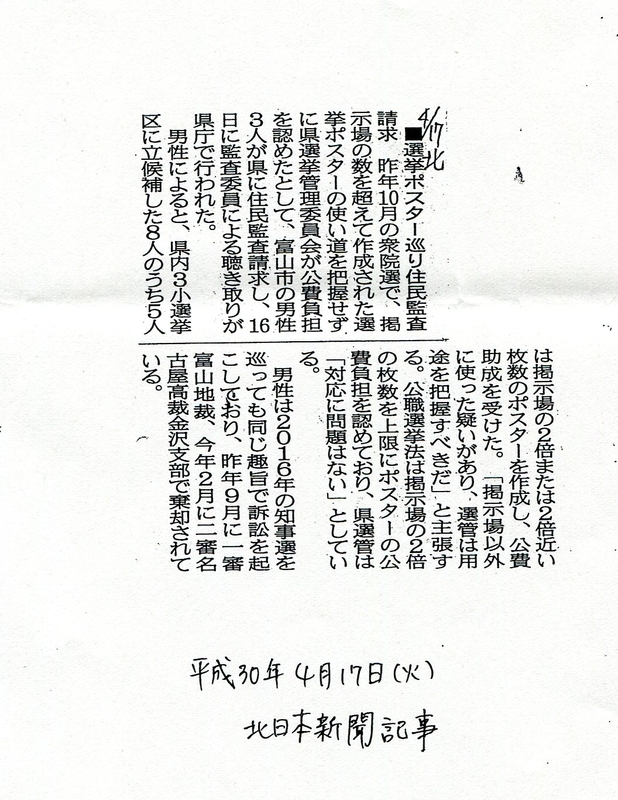 4/17北
■選挙ポスター巡り住民監査
請求　昨年10月の衆院選で、掲
示場の数を超えて作成された選
挙ポスターの使い道を把握せず
に県選挙管理委員会が公費負担
を認めたとして、富山市の男性
3人が県に住民監査請求し、16
日に監査委員による聴き取りが
県庁で行われた。
　男性によると、県内3小選挙
区に立候補した8人のうち5人
は掲示場の2倍または2倍近い
枚数のポスターを作成し、公費
助成を受けた。「掲示場以外
に使った疑いがあり、選管は用
途を把握すべきだ」と主張す
る。公職選挙法は掲示場の2倍
の枚数を上限にポスターの公
費負担を認めており、県選管は
「対応に問題はない」としてい
る。
　男性は2016年の知事選を
巡っても同じ趣旨で訴訟を起
こしており、昨年9月に一審
富山地裁、今年2月に二審名
古屋高裁金沢支部で棄却されて
いる。
平成30年4月17日(火)
北日本新聞記事